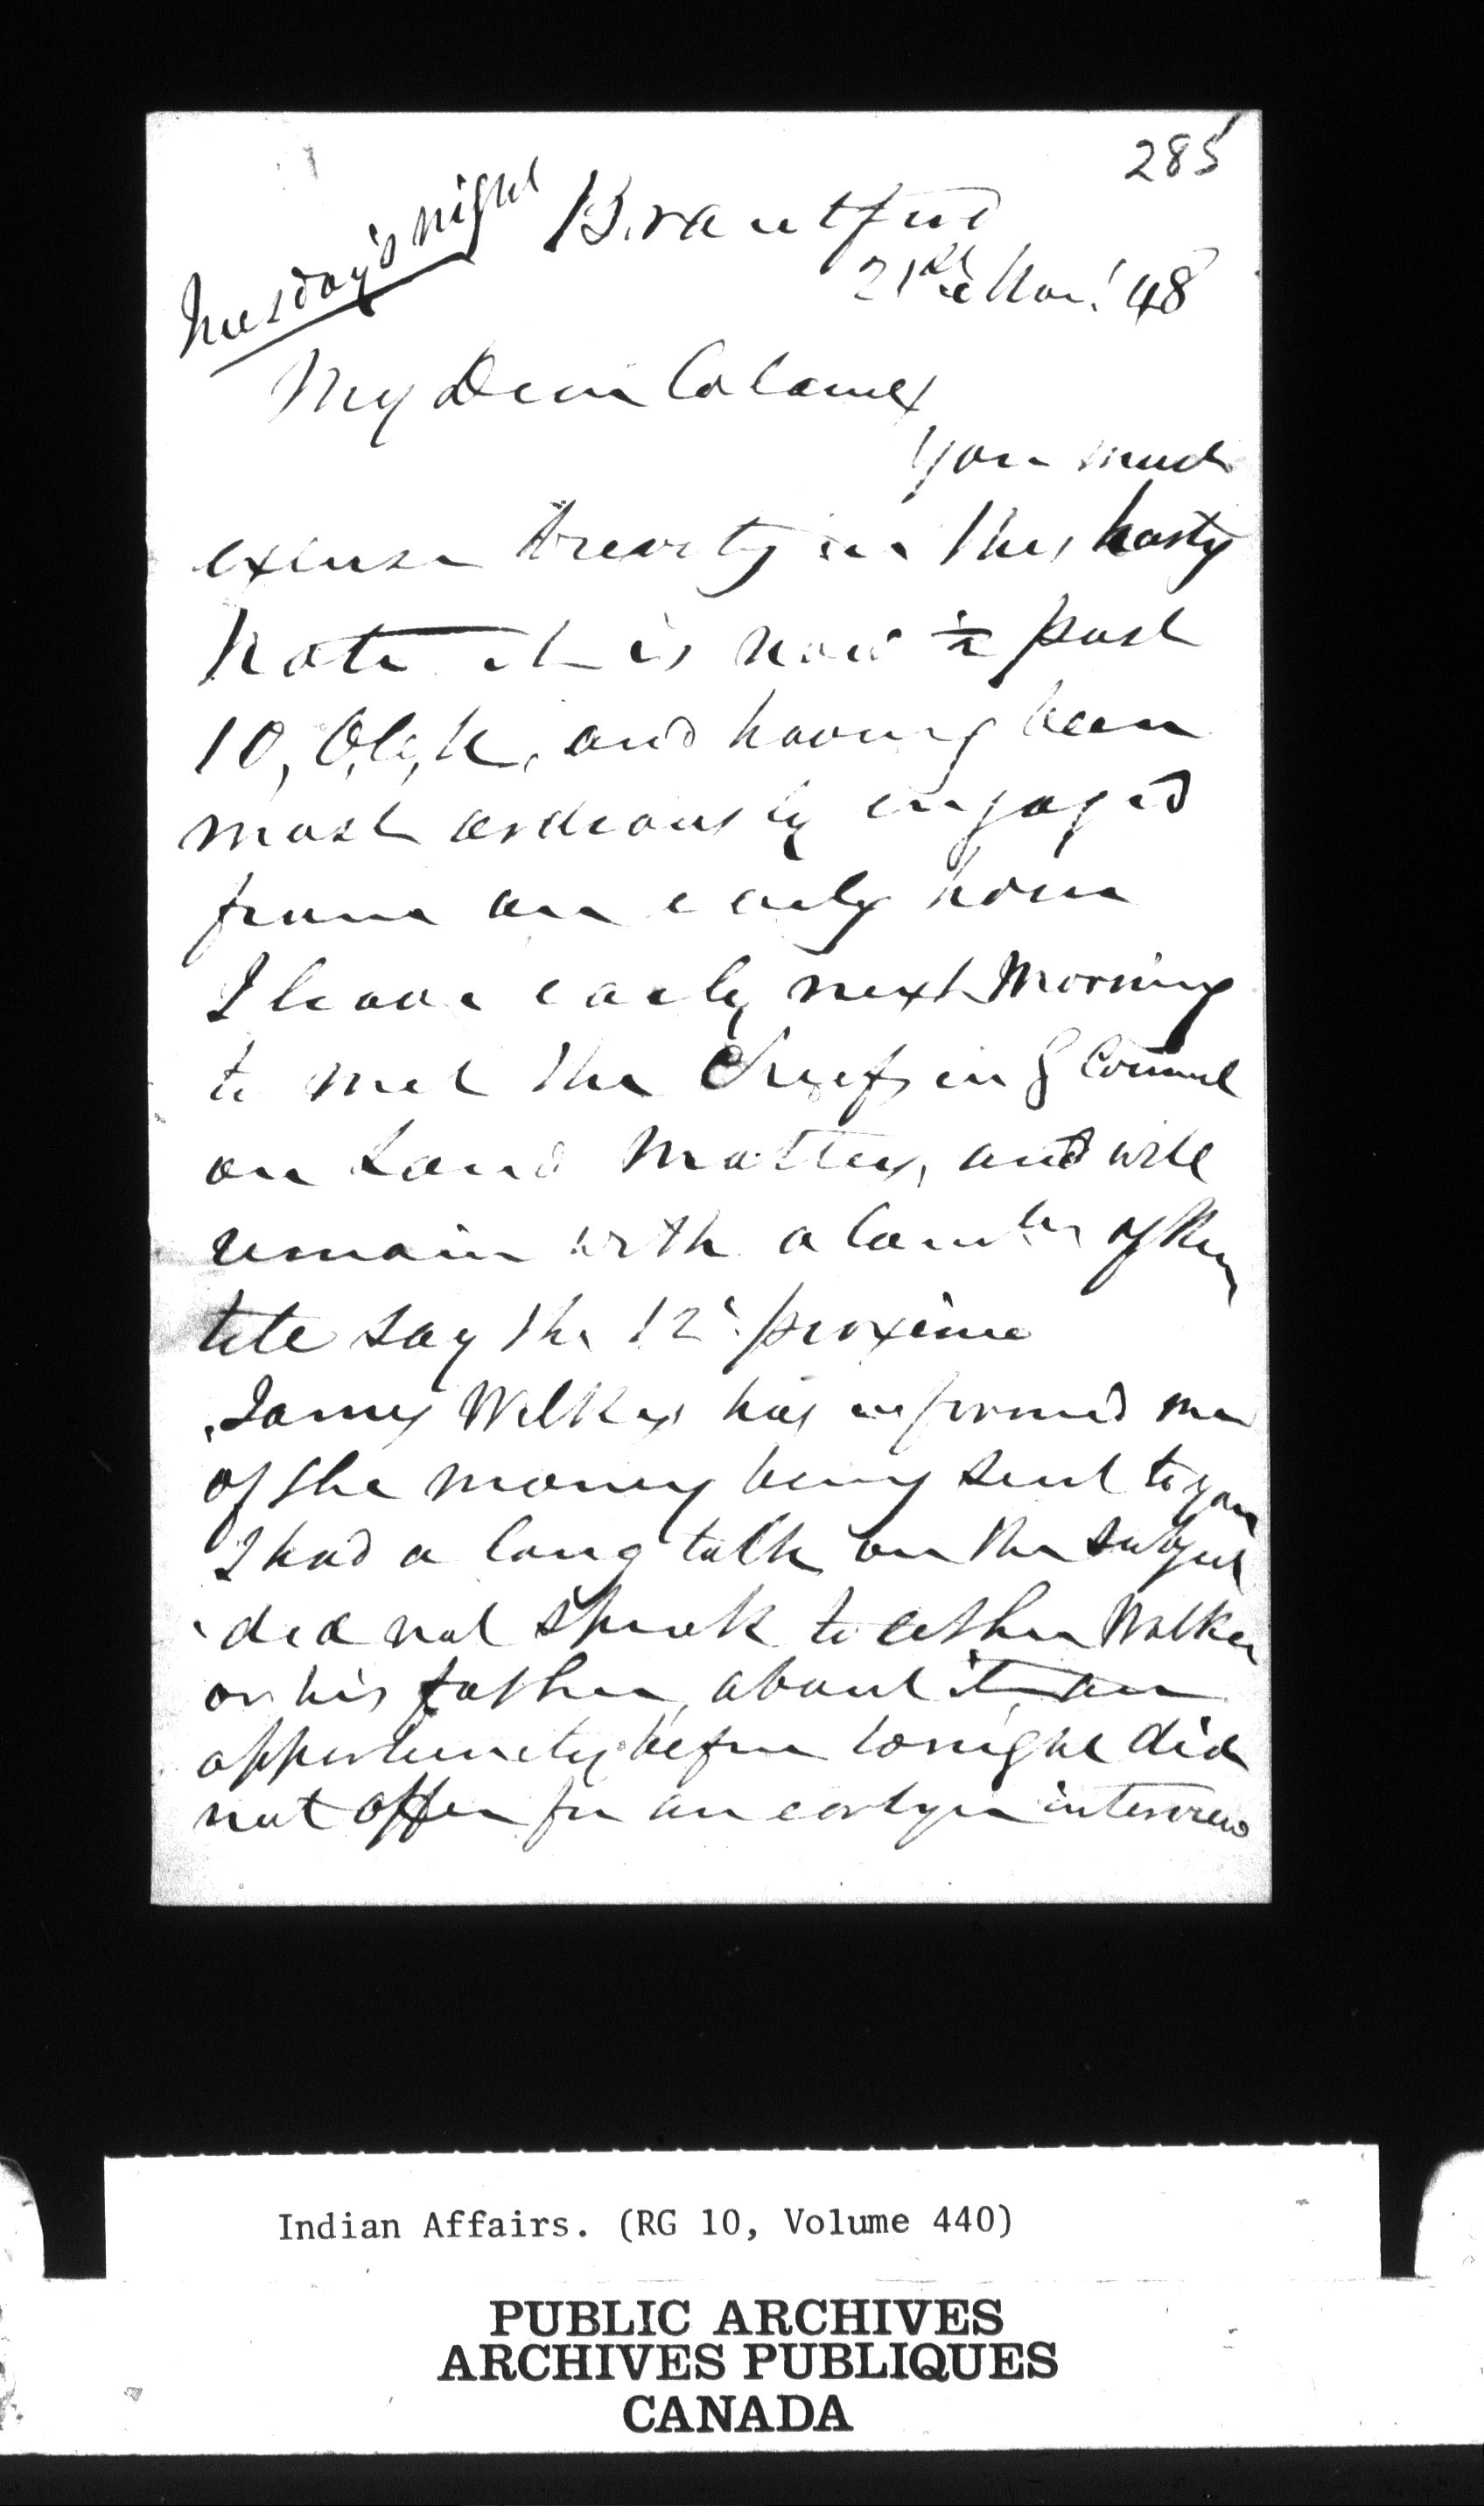 285
Tuesday's night
Brantford
21st Nov. '48
My Dear Colonel
You must
excuse brevity in this hasty
Note it is now ½ past
10, Oclk, and having been
most arduously engaged
from an early hour
I leave early next Morning
to meet the Chiefs in G Council
on Land Matters, and will
remain with a Com'tee of them
till say the 12' proximo
James Wilkes has informed me
of the money being sent to you
I had a long talk on the subject
did not speak to either Walker
or his father, about it an
opportunity before tonight did
not offer for an earlyer interview
Indian Affairs. (RG 10, Volume 440)
PUBLIC ARCHIVES
ARCHIVES PUBLIQUES
CANADA